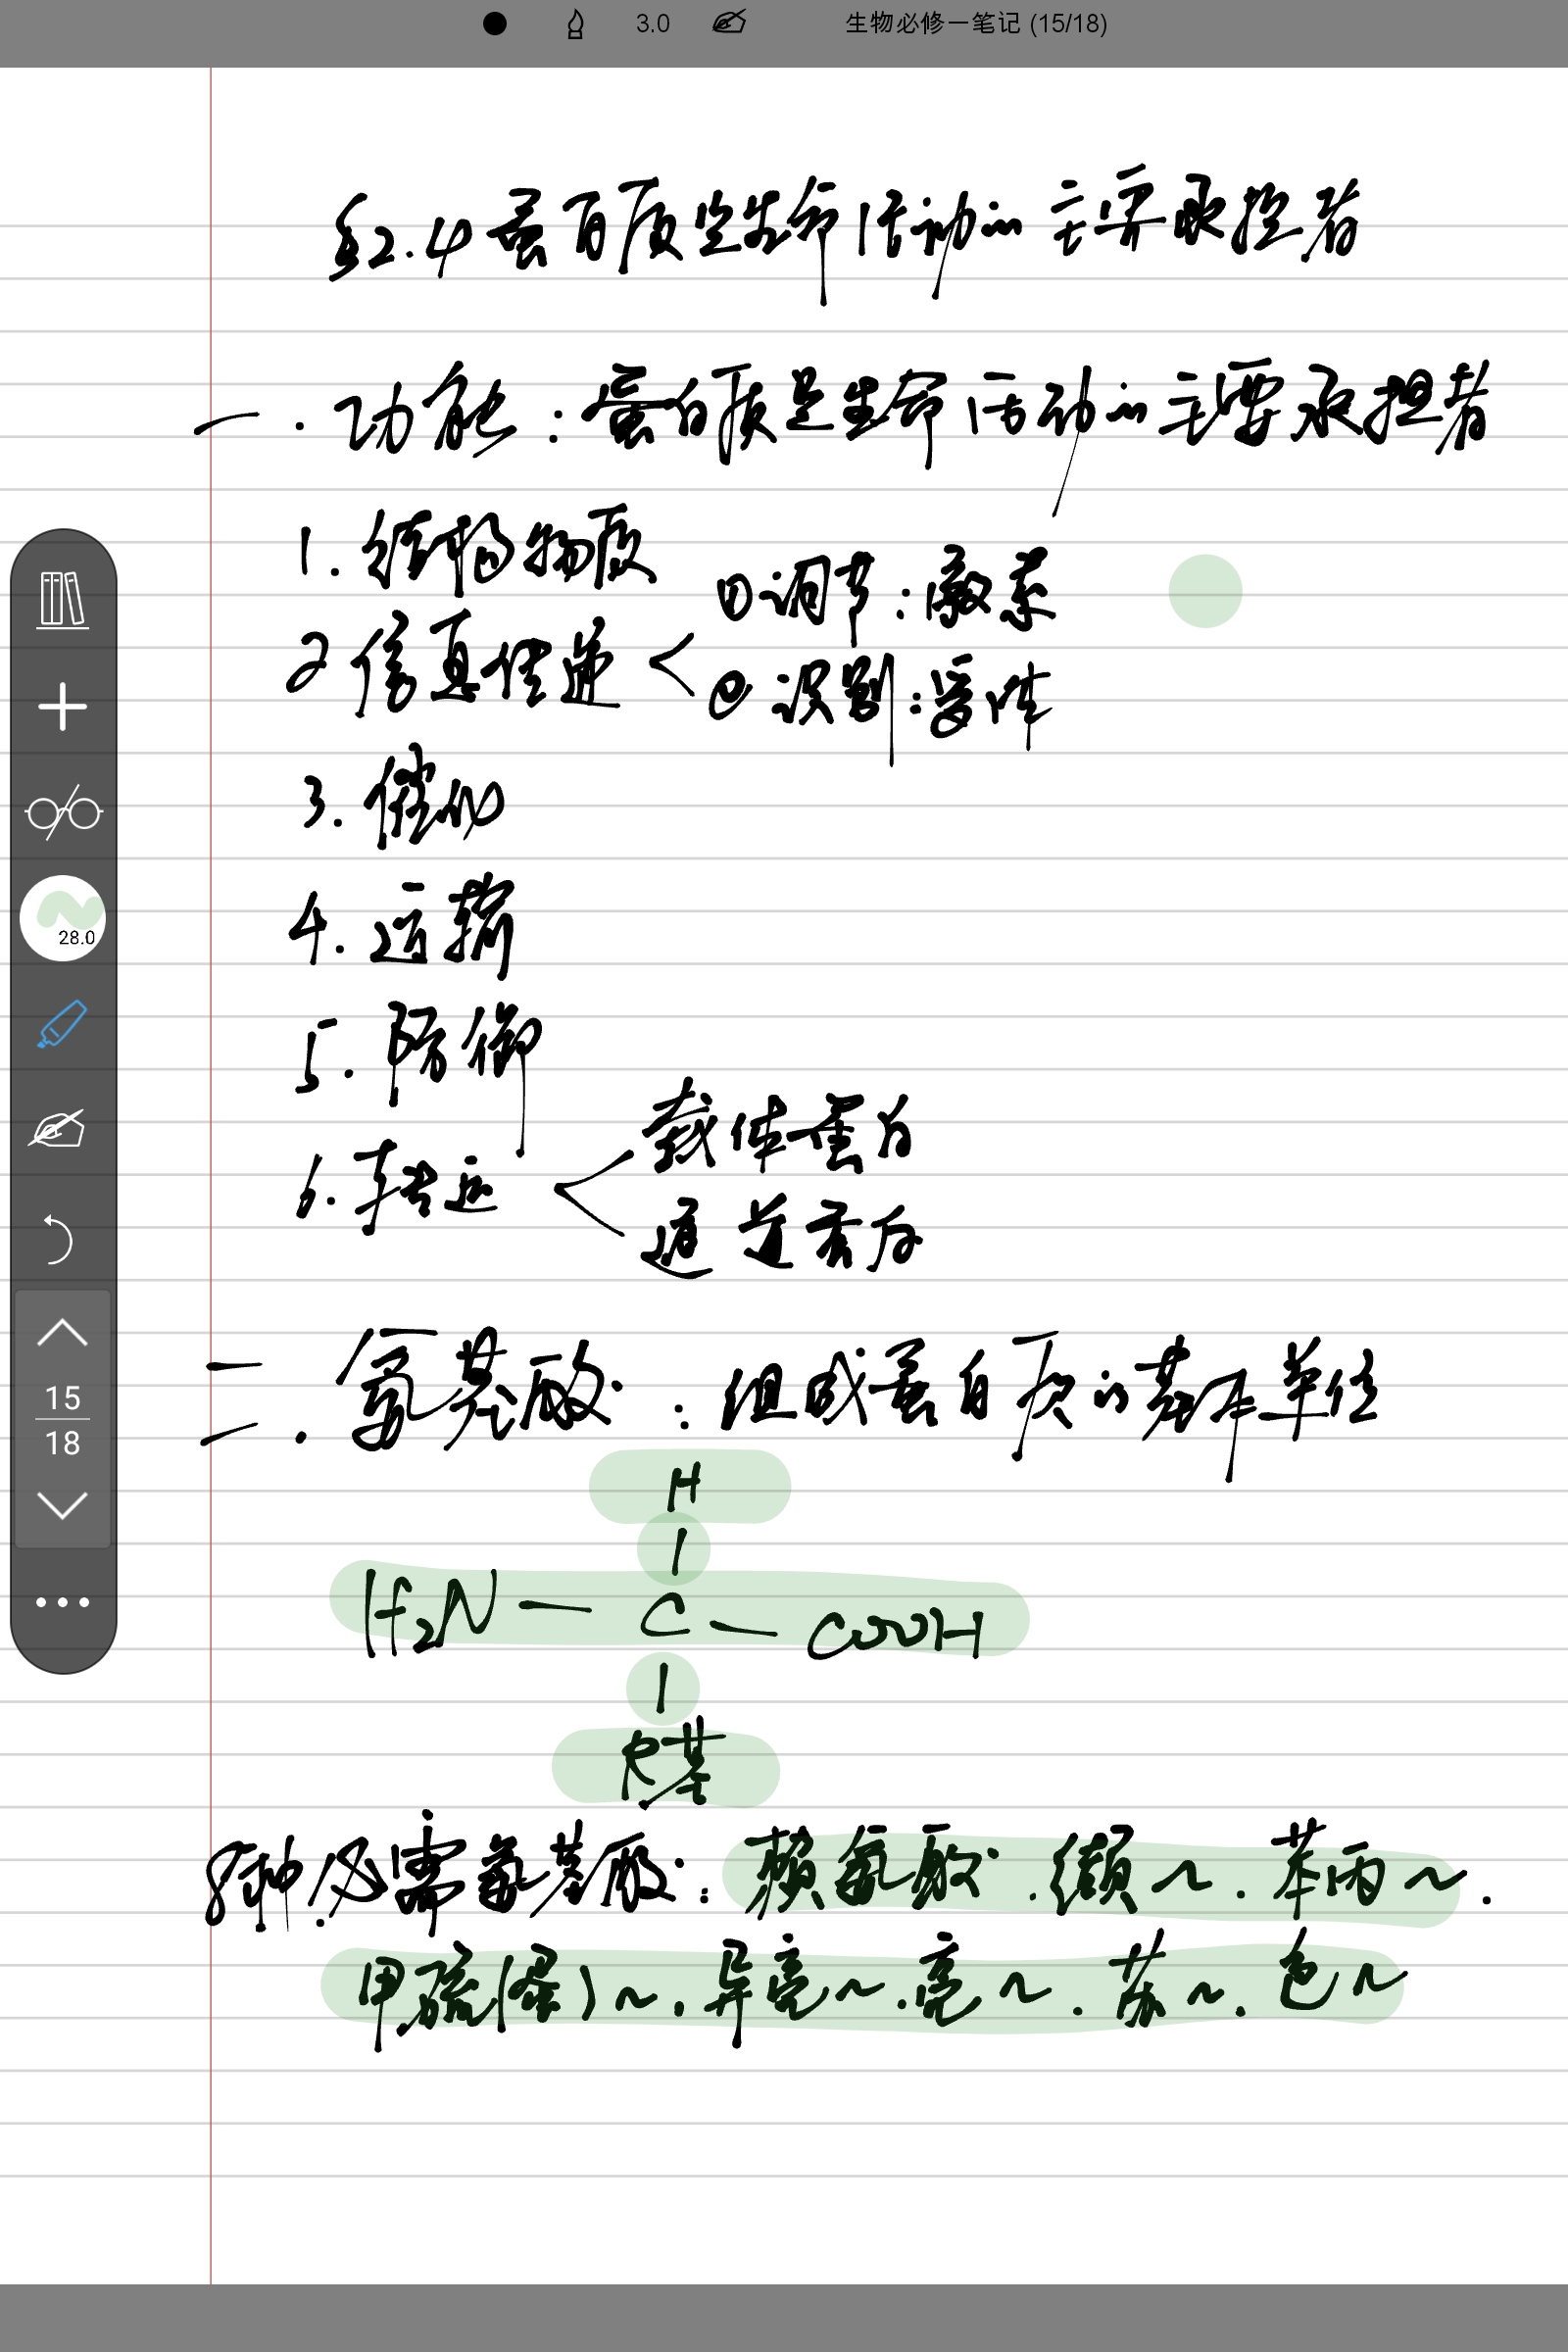 3.0 生物必修一笔记 (15/18)
§2.4 蛋白质是生命活动的主要承担者
一.功能:蛋白质是生命活动的主要承担者
1.结构物质
2 信息传递 < ①调节:激素
②识别:受体
3.催化
4.运输
5.防御
6.转运 < 载体蛋白
通道蛋白
28.0
15
18
二.氨基酸:组成蛋白质的基本单位
H
|
H₂N—C—COOH
|
R基
8种必需氨基酸:赖氨酸.缬~.苯丙~.
甲硫(蛋)~.异亮~.亮~.苏~.色~